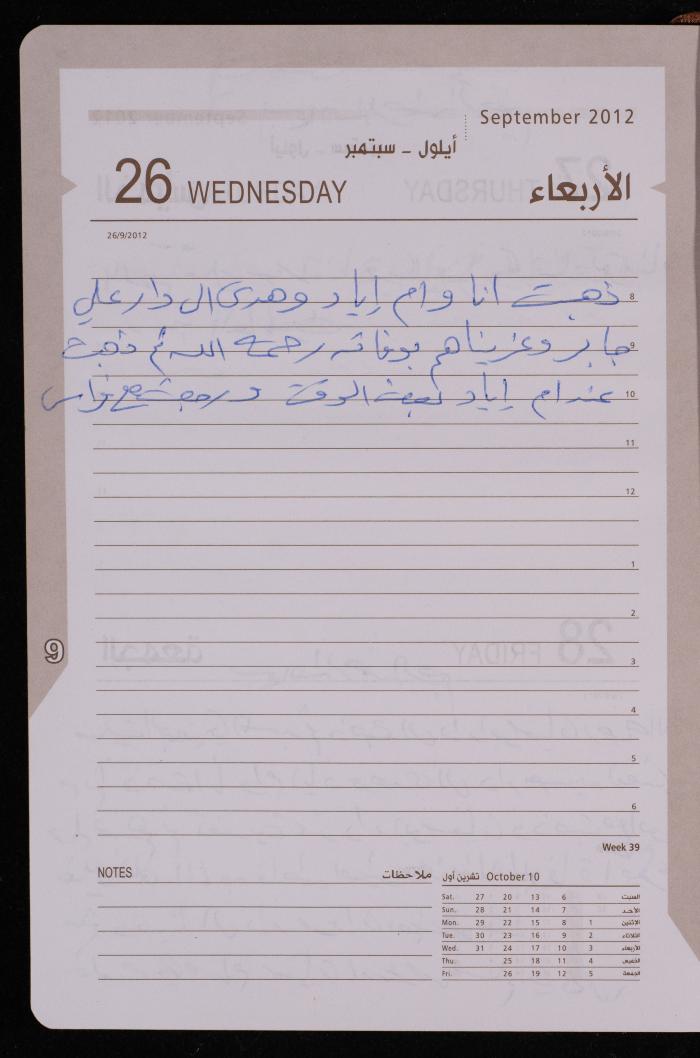 September 2012
أيلول - سبتمبر
26 WEDNESDAY الأربعاء
26/9/2012
ذهبت انا وام إياد وهدى الى دار علي 8
جابر وعزيناهم بوفاته رحمه الله ثم ذهبت 9
عند ام إياد لبعض الوقت ورجعت مع فراس 10
11
12
1
2
9
3
4
5
6
Week 39
NOTES ملاحظات
تشرين أول October 10
Sat. 27 20 13 6 السبت
Sun. 28 21 14 7 الأحد
Mon. 29 22 15 8 1 الإثنين
Tue. 30 23 16 9 2 الثلاثاء
Wed. 31 24 17 10 3 الأربعاء
Thu. 25 18 11 4 الخميس
Fri. 26 19 12 5 الجمعة